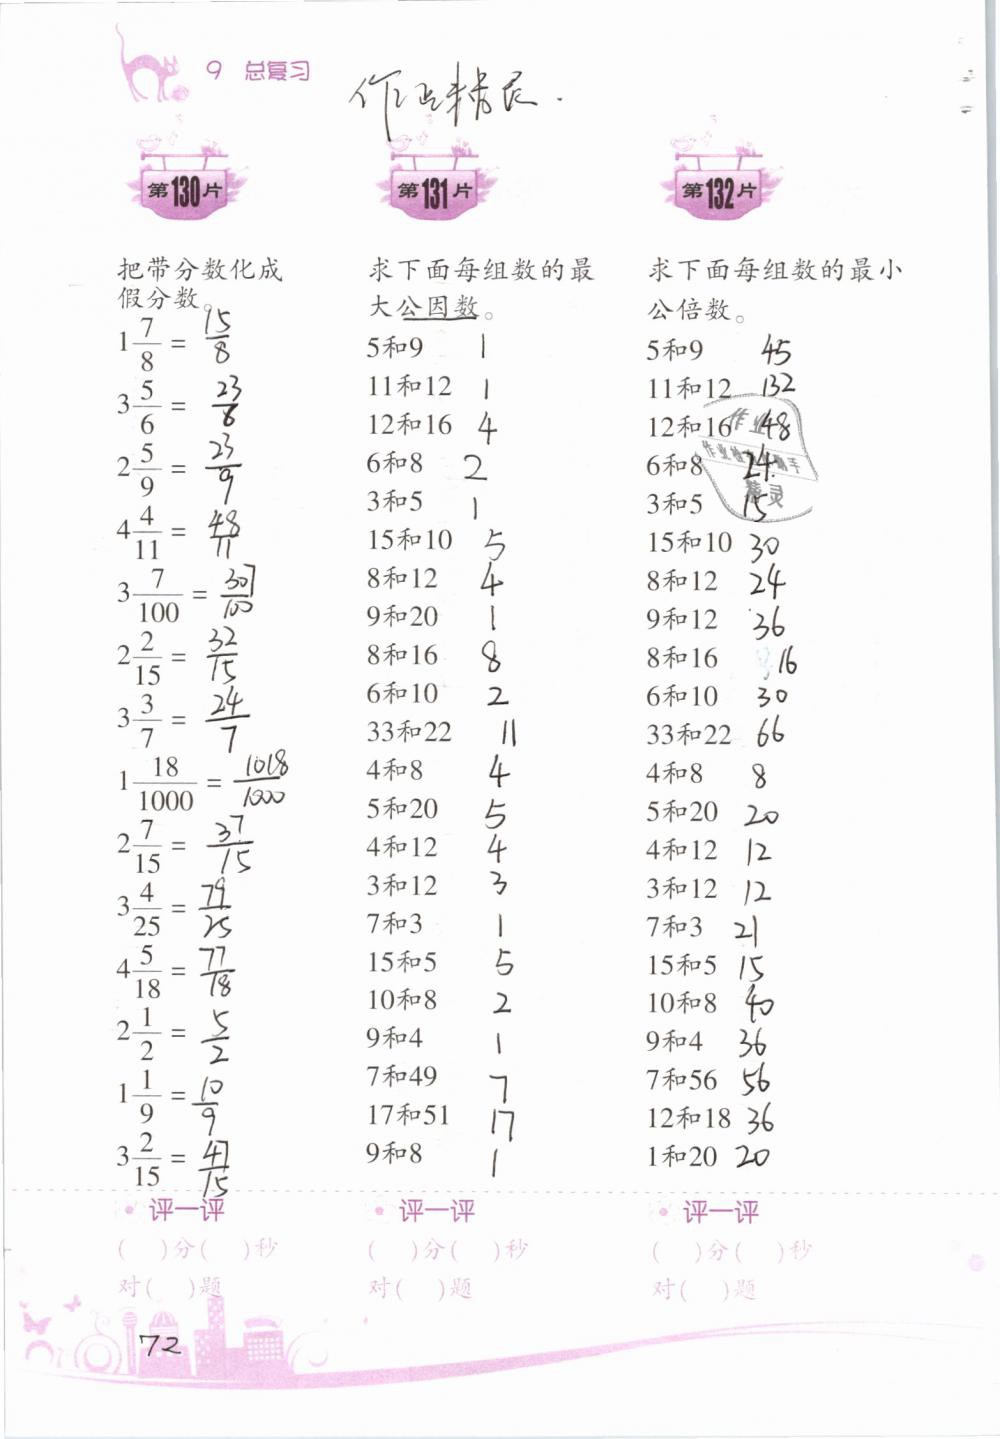 9 总复习
作业精灵.
第130片
把带分数化成
假分数。
1 7/8 = 15/8
3 5/6 = 23/6
2 5/9 = 23/9
4 4/11 = 48/11
3 7/100 = 307/100
2 2/15 = 32/15
3 3/7 = 24/7
1 18/1000 = 1018/1000
2 7/15 = 37/15
3 4/25 = 79/25
4 5/18 = 77/18
2 1/2 = 5/2
1 1/9 = 10/9
3 2/15 = 47/15
评一评
( )分( )秒
对( )题
第131片
求下面每组数的最
大公因数。
5和9 1
11和12 1
12和16 4
6和8 2
3和5 1
15和10 5
8和12 4
9和20 1
8和16 8
6和10 2
33和22 11
4和8 4
5和20 5
4和12 4
3和12 3
7和3 1
15和5 5
10和8 2
9和4 1
7和49 7
17和51 17
9和8 1
评一评
( )分( )秒
对( )题
第132片
求下面每组数的最小
公倍数。
5和9 45
11和12 132
12和16 48
6和8 24
3和5 15
15和10 30
8和12 24
9和12 36
8和16 16
6和10 30
33和22 66
4和8 8
5和20 20
4和12 12
3和12 12
7和3 21
15和5 15
10和8 40
9和4 36
7和56 56
12和18 36
1和20 20
评一评
( )分( )秒
对( )题
72